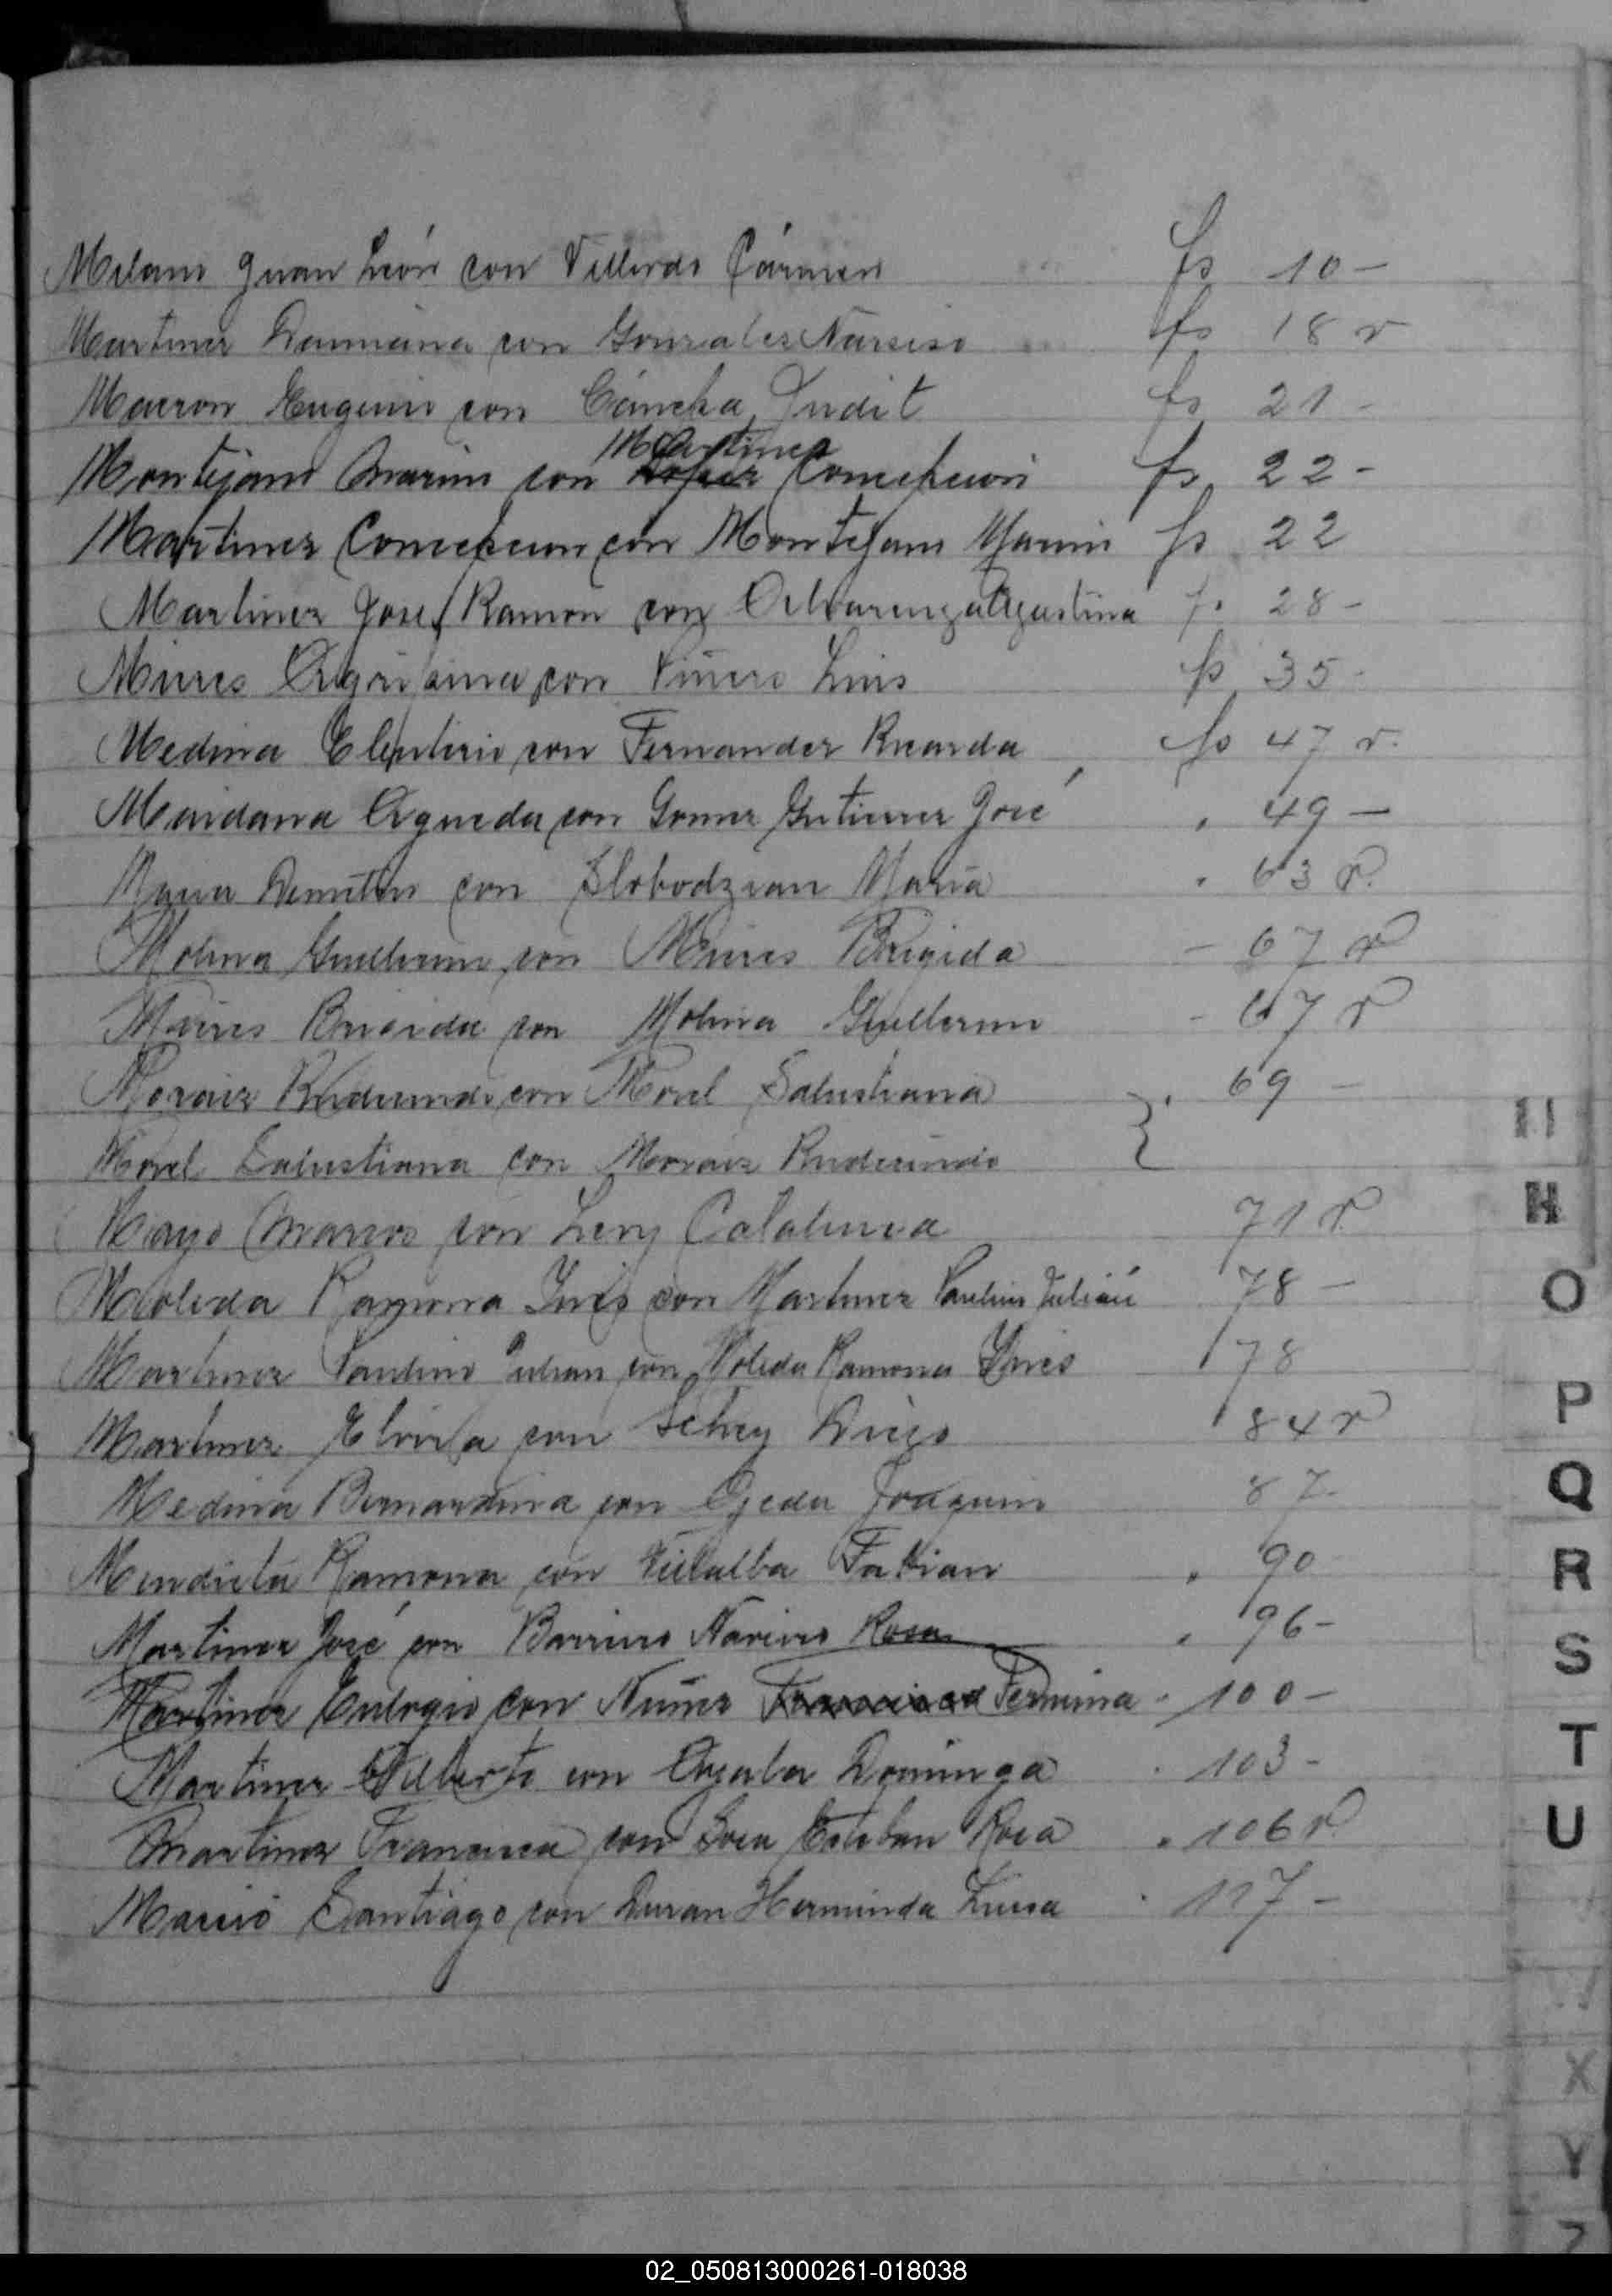 Milano Juan León con Villordo Cármen fs 10 -
Martinez Damiana con Gonzalez Narsiso fs 18 v
Macron Eugenio con Cáncha Judit fs 21 -
Martinez
Montejano Marino con Lopez Concepcion fs 22 -
Martinez Concepcion con Montejano Marino fs 22
Martinez José Ramon con Alvarenga Agustina fs 28 -
Mieres con Piñero Luis fs 35 -
Medina Eleuterio con Fernandez Ricarda fs 47 v.
Maidana Agueda con Gomez Gutierrez José " 49 -
Demetrio con Slobodzian Maria " 63 v.
Molina Guillermo con Mieres Brigida - 67 v
Mieres Brigida con Molina Guillermo - 67 v
Moraiz Rudecindo con Morel Salustiana } " 69 -
Morel Salustiana con Moraiz Rudecindo
Mayo Marcos con Leny Catalina 71 v.
Moleda Ramona Ynes con Martinez Paulino Julián 78 -
Martinez Paulino Julian con Moleda Ramona Ynes 78
Martinez Elvira con Diego 84 v
Medina Bernardina con Ojeda Joaquin 87 -
Mendieta Ramona con Villalba Fabian " 90
Martinez José con Barrios Rosa " 96 -
Martinez Eulogio con Nuñez Francisca Fermina " 100 -
Martinez Gilberto con Ayala Dominga " 103 -
Martinez Francisca con Sosa Esteban Roca " 106 v.
Santiago con Duran Herminda Luisa " 117 -
H
O
P
Q
R
S
T
U
X
Y
Z
02_050813000261-018038